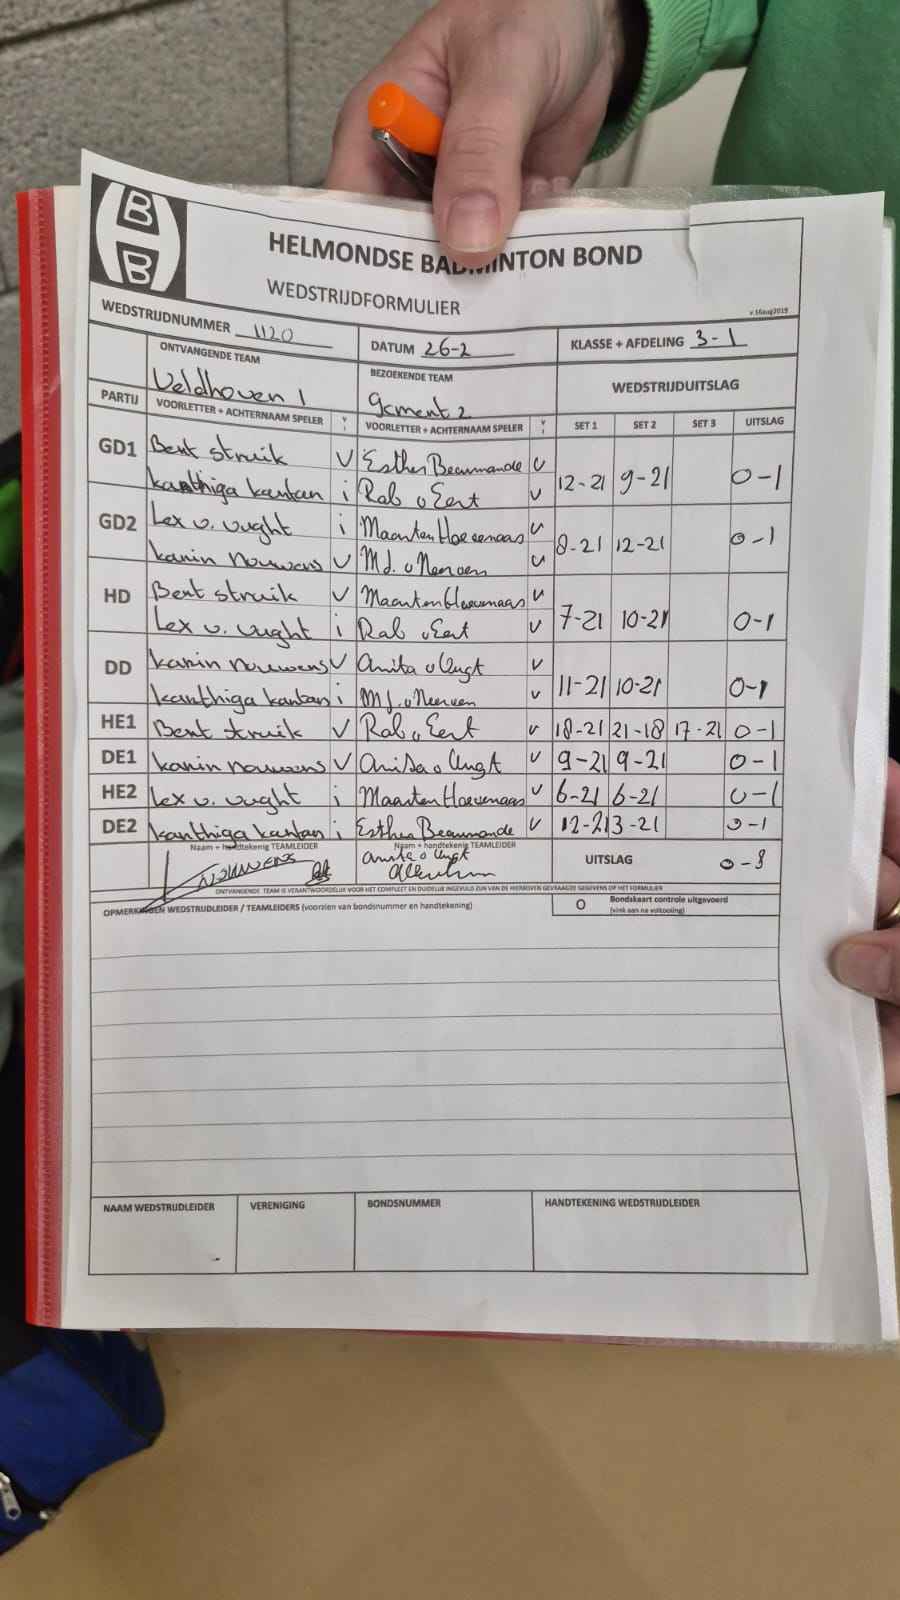 HELMONDSE BADMINTON BOND
WEDSTRIJDFORMULIER
v.16aug2019
WEDSTRIJDNUMMER 1120 DATUM 26-2 KLASSE + AFDELING 3-1
ONTVANGENDE TEAM BEZOEKENDE TEAM WEDSTRIJDUITSLAG
Veldhoven 1 Gement 2
PARTIJ VOORLETTER + ACHTERNAAM SPELER V I VOORLETTER + ACHTERNAAM SPELER V I SET 1 SET 2 SET 3 UITSLAG
GD1 Bent struik V Esther Beaumande v 12-21 9-21 0-1
kanthiga kantan i Rab v Eert v
GD2 Lex v. vught i Maarten Hoevenaas v 8-21 12-21 0-1
karin nouwens V M.J. v Neerven v
HD Bent struik V Maarten Hoevenaas v 7-21 10-21 0-1
Lex v. vught i Rab v Eert v
DD karin nouwens V Anita v Vugt v 11-21 10-21 0-1
kanthiga kantan i M.J. v Neerven v
HE1 Bent struik V Rab v Eert v 18-21 21-18 17-21 0-1
DE1 karin nouwens V Anita v Vugt v 9-21 9-21 0-1
HE2 Lex v. vught i Maarten Hoevenaas v 6-21 6-21 0-1
DE2 kanthiga kantan i Esther Beaumande v 12-21 3-21 0-1
Naam + handtekenig TEAMLEIDER Naam + handtekenig TEAMLEIDER
NOUWENS Anita v Vugt UITSLAG 0-8
ONTVANGENDE TEAM IS VERANTWOORDELIJK VOOR HET COMPLEET EN DUIDELIJK INGEVULD ZIJN VAN DE HIERBOVEN GEVRAAGDE GEGEVENS OP HET FORMULIER
OPMERKINGEN WEDSTRIJDLEIDER / TEAMLEIDERS (voorzien van bondsnummer en handtekening) O Bondskaart controle uitgevoerd
(vink aan na voltooiing)
NAAM WEDSTRIJDLEIDER VERENIGING BONDSNUMMER HANDTEKENING WEDSTRIJDLEIDER